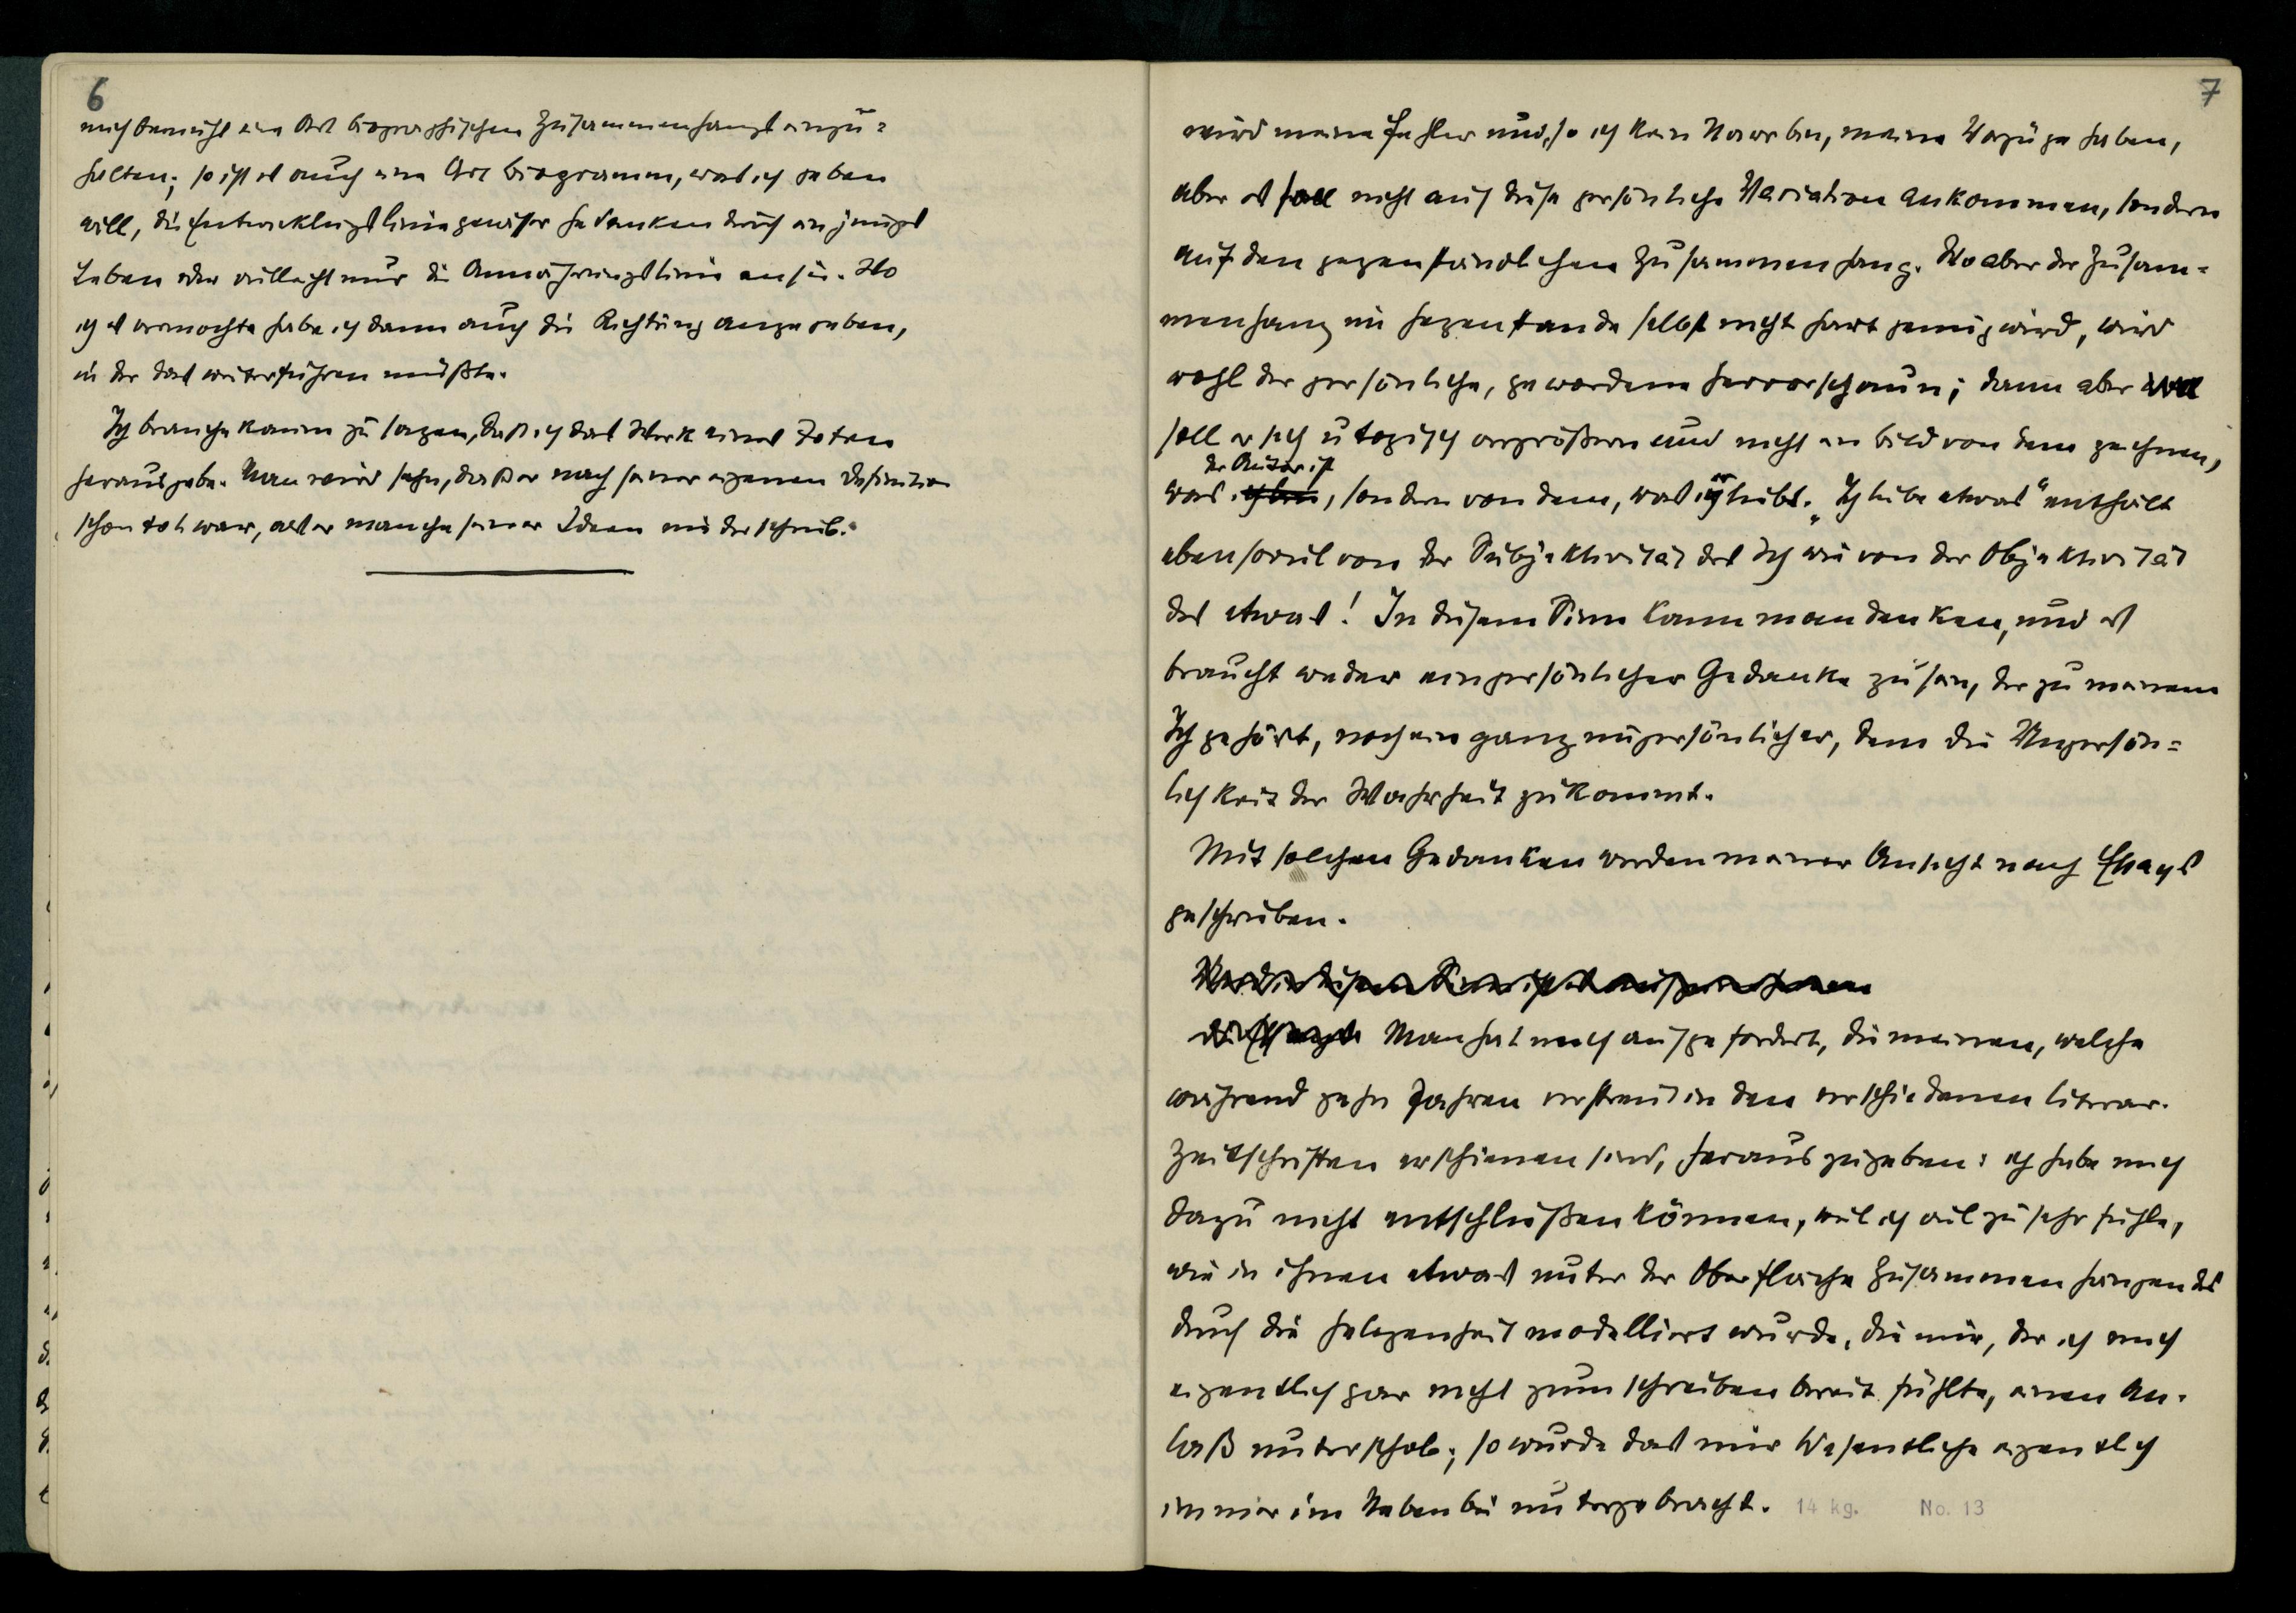 6
mich bemüht eine Art biographischen Zusammenhangs einzu=
halten; so ist es auch eine Art Biogramm, was ich geben
will, die Entwicklungslinie gewisser Gedanken durch ein junges
Leben oder vielleicht nur die Annäherungslinie an sie. Wo
ich es vermochte habe ich dann auch die Richtung angegeben,
in der das weiterführen müßte.
Ich brauche kaum zu sagen, daß ich das Werk eines Toten
herausgebe. Man wird sehn, daß er nach seiner eigenen Definition
schon tot war, als er manche seiner Ideen niederschrieb.
7
wird meine Fehler und, so ich kein Narr bin, meine Vorzüge haben,
aber es soll nicht auf diese persönliche Variation ankommen, sondern
auf den gegenständlichen Zusammenhang. Wo aber der Zusam=
menhang im Gegenstande selbst nicht hart genug wird, wird
wohl der persönliche, gewordene hervorschaun; dann aber
soll er sich utopisch vergrößern und nicht ein Bild von dem zeichnen,
der Autor ist
was ich bin, sondern von dem, was er liebt. „Ich liebe etwas" enthält
ebensoviel von der Subjektivität des Ich wie von der Objektivität
des etwas! In diesem Sinn kann man denken, und es
braucht weder ein persönlicher Gedanke zu sein, der zu meinem
Ich gehört, noch ein ganz unpersönlicher, dem die Unpersön=
lichkeit der Wahrheit zukommt.
Mit solchen Gedanken werden meiner Ansicht nach Essays
geschrieben.
in diesem Sinn ist
die Essays Man hat mich aufgefordert, die meinen, welche
während zehn Jahren verstreut in den verschiedenen literar.
Zeitschriften erschienen sind, herauszugeben: ich habe mich
dazu nicht entschließen können, weil ich viel zu sehr fühle,
wie in ihnen etwas unter der Oberfläche Zusammenhängendes
durch die Gelegenheit modelliert wurde, die mir, der ich mich
eigentlich gar nicht zum schreiben bereit fühlte, einen An-
laß unterschob; so wurde das mir Wesentliche eigentlich
immer im Nebenbei untergebracht. 14 kg. No. 13